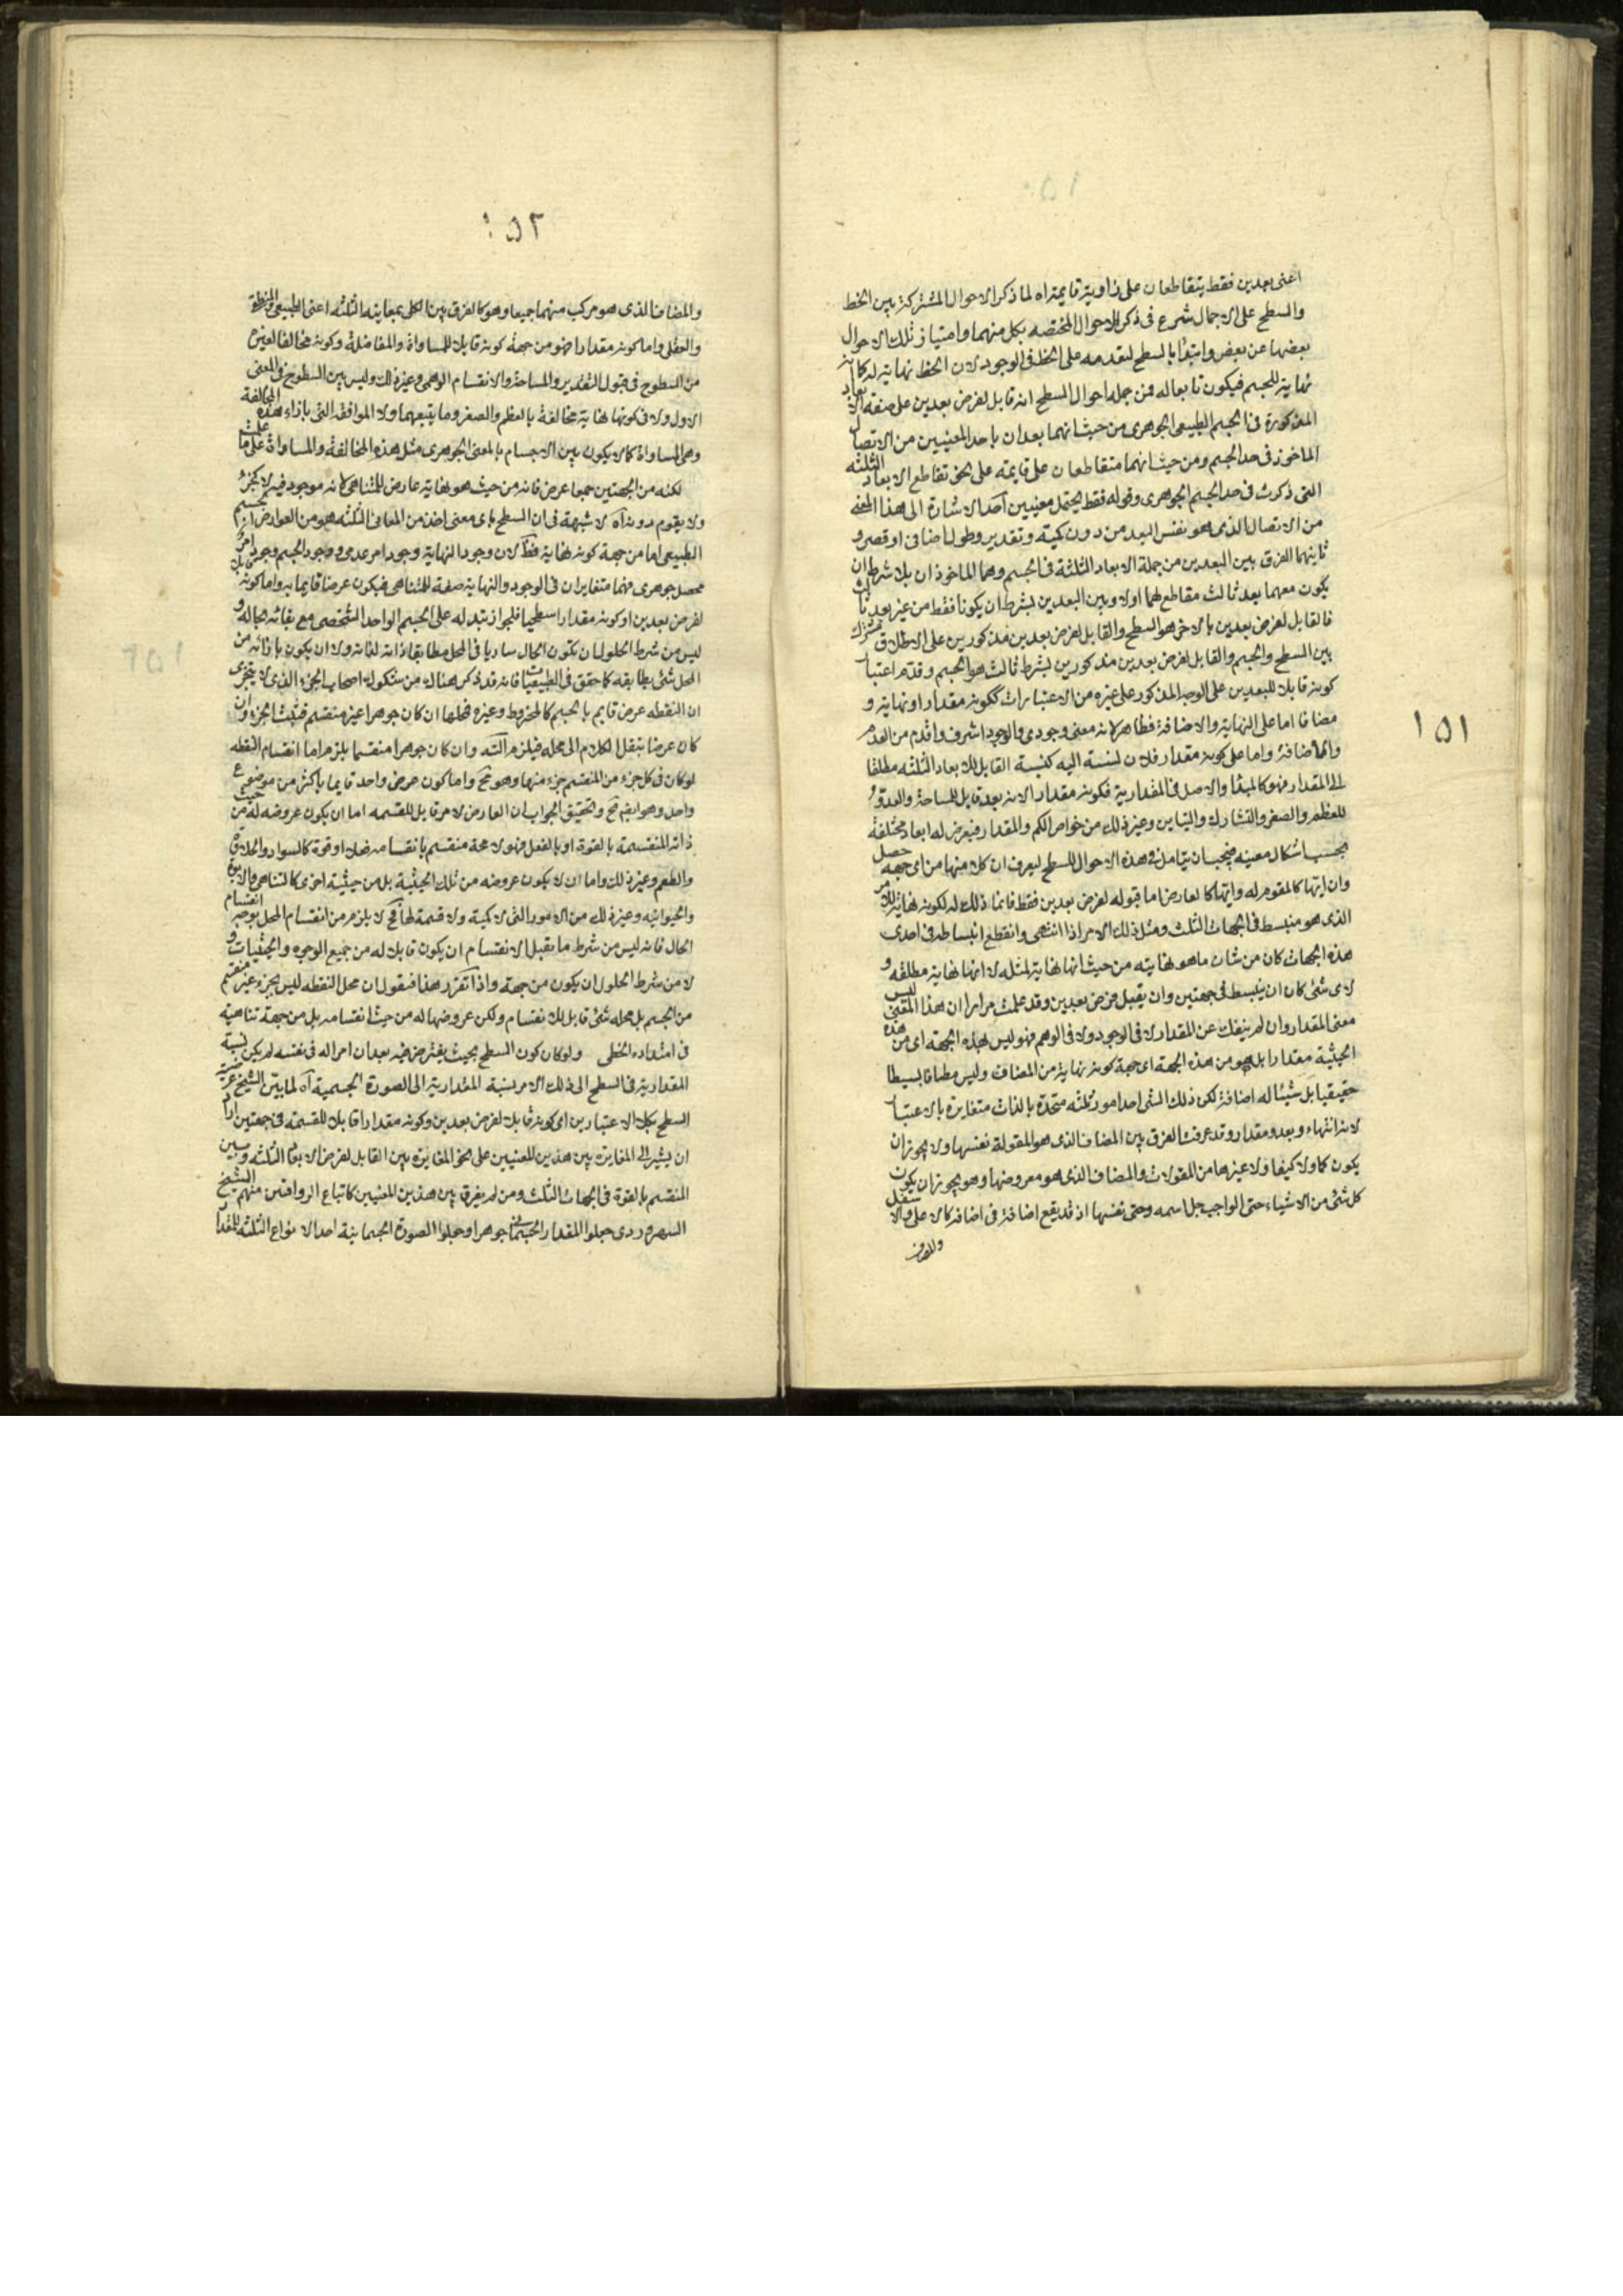 ١٥١
اعنى بعدين فقط يتقاطعان على زاوية قايمة اه لما ذكر الاحوال المشتركة بين الخط
والسطح على الاجمال شرع فى ذكر الاحوال المختصه بكل منهما وامتياز تلك الاحوال
بعضها عن بعض وابتدا بالسطح لتقدمه على الخط فى الوجود لان الخط نهاية له كما انه
نهاية للجسم فيكون تابعا له فمن جملة احوال السطح انه قابل لفرض بعدين على صفة الابعاد
المذكورة فى الجسم الطبيعى الجوهرى من حيث انهما بعدان باحد المعنيين من الاتصال
الماخوذ فى حد الجسم ومن حيث انهما متقاطعان على قايمة على نحو تقاطع الابعاد الثلثه
التى ذكرت فى حد الجسم الجوهرى وقوله فقط يحتمل معنيين احدا لاشارة الى هذا المعنى
من الاتصال الذى هو نفس البعد من دون كمية وتقدير وطول اضافى او قصر و
ثانيهما الفرق بين البعدين من جملة الابعاد الثلثة فى الجسم وهما الماخوذان بلا شرط ان
يكون معهما بعد ثالث مقاطع لهما اولا وبين البعدين بشرط ان يكونا فقط من غير بعد ثالث
فالقابل لفرض بعدين بالاخر هو السطح والقابل لفرض بعدين مذكورين على الاطلاق مشترك
بين السطح والجسم والقابل لفرض بعدين مذكورين بشرط ثالث هو الجسم وقدم اعتبار
كونه قابلا للبعدين على الوجه المذكور على غيره من الاعتبارات ككونه مقدارا او نهاية و
مضافا اما على النهاية والاضافة فظاهر لانه معنى وجودى والوجود اشرف واقدم من العدم
والاضافة واما على كونه مقدار فلان نسبته اليه كنسبة القابل للابعاد الثلثه مطلقا
الى المقدار فهو كالمبدا والاصل فى المقدارية فكونه مقدار الانه بعد قابل للمساحة والعدو
للعظم والصغر والتشارك والتباين وغير ذلك من خواص الكم والمقدار فيعرض له ابعاد مختلفة
بحسب اشكال معينه فيجب ان يتامل فى هذه الاحوال للسطح ليعرف ان كلا منها من اى جهة حصل
وان ايتها كالمقوم له وايتها كالعارض اما قبوله لفرض بعدين فقط فانما ذلك له لكونه نهاية للامر
الذى هو منبسط فى الجهات الثلث ومثل ذلك الامر اذا انتهى وانقطع انبساطه فى احدى
هذه الجهات كان من شان ما هو نهايته من حيث انها نهاية لمثله لا انها نهاية مطلقه و
لاى شئ كان ان ينبسط فى جهتين وان يقبل فرض بعدين وقد علمت مرارا ان هذا المعنى ليس
معنى المقدار وان لم ينفك عن المقدار لا فى الوجود ولا فى الوهم فهو ليس لهذه الجهة اى من هذه
الحيثية مقدارا بل هو من هذه الجهة اى جهة كونه نهاية من المضاف وليس مضافا بسيطا
حقيقيا بل شيئا له اضافة لكن ذلك الشئ احد امور ثلثه متحدة بالذات متغايرة بالاعتبار
لانه انتهاء وبعد ومقدار وقد عرفت الفرق بين المضاف الذى هو المقولة نفسها ولا يجوز ان
يكون كما ولا كيفا ولا غيرها من المقولات والمضاف الذى هو معروضها وهو يجوز ان يكون
كل شئ من الاشياء حتى الواجب جل اسمه وحتى نفسها اذ قد يقع اضافة فى اضافة كالاعلى والاسفل
والمضاف
١٥٢
والمضاف الذى هو مركب منهما جميعا وهو كالفرق بين الكلى بمعانيه الثلثه اعنى الطبيعى والمنطقى
والعقلى واما كونه مقدارا فهو من جهة كونه قابلا للمساواة والمفاضلة وكونه مخالفا لغيره
من السطوح فى قبول التقدير والمساحة والانقسام الوهمى وغير ذلك وليس بين السطوح فى المعنى
الاول ولا فى كونها نهاية مخالفة بالعظم والصغر وما يتبعهما ولا الموافقه التى بازاء هذه المخالفة
وهى المساواة كما لا يكون بين الاجسام بالمعنى الجوهرى مثل هذه المخالفة والمساواة على ما علمت
لكنه من الجهتين جميعا عرض فانه من حيث هو نهاية عارض للمتناهى لانه موجود فيه لا كجزء
ولا يقوم دونه اه لا شبهة فى ان السطح باى معنى اخذ من المعانى الثلثه هو من العوارض للجسم
الطبيعى اما من جهة كونه نهاية فقط لان وجود النهاية وجود امر عدمى ووجود الجسم وجود امر
محصل جوهرى فهما متغايران فى الوجود والنهاية صفة للمتناهى فيكون عرضا قايما به واما كونه
لفرض بعدين او كونه مقدارا سطحيا فلجواز تبدله على الجسم الواحد الشخصى مع بقائه بحاله و
ليس من شرط الحلول ان يكون الحال ساريا فى المحل مطابقا ذاته لذاته ولا ان يكون بازائه من
المحل شئ يطابقه كما حقق فى الطبيعيات فانه قد ذكر هناك من شكوك اصحاب الجزء الذى لا يتجزى
ان النقطه عرض قايم بالجسم كالمخروط وغيره فمحلها ان كان جوهرا غير منقسم فثبت الجزء وان
كان عرضا ننقل الكلام الى محله فيلزم التسـ وان كان جوهرا منقسما يلزم اما انقسام النقطه
لو كان فى كل جزء من المنقسم جزء منها وهو مح واما كون عرض واحد قايما باكثر من موضوع
واحد وهو ايضا مح وتحقيق الجواب ان العارض لامر قابل للقسمه اما ان يكون عروضه له من حيث
ذاته المنقسمة بالقوة او بالفعل فهو لا محة منقسم بانقسامه فعلا او قوة كالسواد والحلاوة
والطعم وغير ذلك واما ان لا يكون عروضه من تلك الحيثية بل من حيثية اخرى كالتناهى والابوة
والحيوانيه وغير ذلك من الامور التى لا كمية ولا قسمة لها فح لا يلزم من انقسام المحل بوجه انقسام
الحال فانه ليس من شرط ما يقبل الانقسام ان يكون قابلا له من جميع الوجوه والحيثيات و
لا من شرط الحلول ان يكون من جهته واذا تقرر هذا فنقول ان محل النقطه ليس بجزء غير منقسم
من الجسم بل محله شئ قابل للانقسام ولكن عروضها له من حيث انقسامه بل من جهة تناهيه
فى امتداده الخطى ولو كان كون السطح بحيث يفرض فيه بعدان امرا له فى نفسه لم يكن نسبة
المقدارية فى السطح الى ذلك الامر نسبة المقدارية الى الصورة الجسمية اه لما بين الشيخ عرضية
السطح بكلا الاعتبارين اى كونه قابلا لفرض بعدين وكونه مقدارا قابلا للقسمة فى جهتين اراد
ان يشير الى المغايرة بين هذين المعنيين على نحو المغايرة بين القابل لفرض الابعاد الثلثه وبين
المنقسم بالقوة فى الجهات الثلث ومن لم يفرق بين هذين المعنيين كاتباع الرواقيين منهم الشيخ
السهروردى جعلوا المقدار الجسمانى جوهرا وجعلوا الصورة الجسمانية احد الانواع الثلثه للمقدار